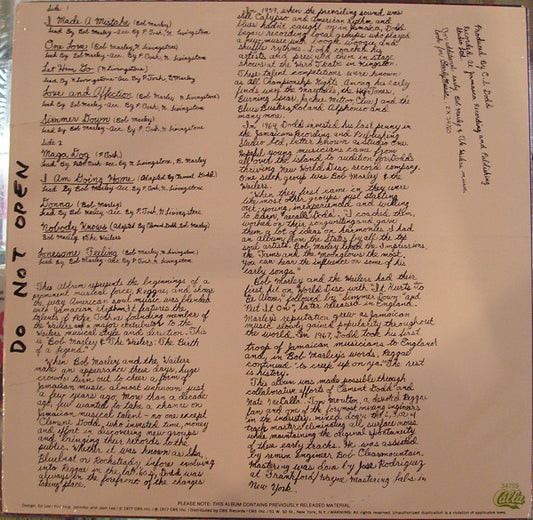 Side 1
I Made A Mistake (Bob Marley)
Lead By Bob Marley - Acc. By P. Tosh, N. Livingstone
One Love (Bob Marley, N. Livingstone)
Lead By Bob Marley - Acc. By P. Tosh, N. Livingstone
Let Him Go (N. Livingstone)
Lead By N. Livingstone - Acc. By P. Tosh, B. Marley
Love and Affection (Bob Marley, N. Livingstone)
Lead By Bob Marley - Acc. By P. Tosh, N. Livingstone
Simmer Down (Bob Marley)
Lead By Bob Marley - Acc. By P. Tosh, N. Livingstone
Side 2
Maga Dog (P. Tosh)
Lead By Peter Tosh - Acc. By N. Livingstone, B. Marley
I Am Going Home (Adapted By Clement Dodd)
Lead By Bob Marley - Acc. By P. Tosh, N. Livingstone
Donna (Bob Marley)
Lead By Bob Marley - Acc. By P. Tosh, N. Livingstone
Nobody Knows (Adapted By Clement Dodd, Ed. Bob Marley)
Bob Marley & The Wailers
Lonesome Feeling (Bob Marley, N. Livingstone)
Lead By Bob Marley - Acc. By P. Tosh, N. Livingstone
This Album represents the beginnings of a
prominent musical force, Reggae; and shows
the way American soul music was blended
with Jamaican rhythms. It features the
talents of Peter Tosh, a founding member of
the Wailers and a major contributor to the
Wailers musical style and direction. This
is Bob Marley & The Wailers: The Birth
of a legend.
When Bob Marley and the Wailers
make an appearance these days, huge
crowds turn out to cheer a form of
Jamaican music almost unknown just
a few years ago. More than a decade
ago, few wanted to take a chance on
Jamaican musical talent - no one except
Clement Dodd, who invested time, money
and effort in discovering new groups
and bringing their records to the
public. Whether it was known as Ska,
Bluebeat or Rocksteady before evolving
into Reggae in the late 60's, Dodd was
always in the forefront of the changes
taking place.
In 1959, when the prevailing sound was
still Calypso and American rhythm and
blues hadn't caught on in Jamaica, Dodd
began recording local groups who played
a new music with boogie woogie and
shuffle rhythms. Dodd coached his
artists and presented them in stage
shows at the Ward Theatre in Kingston.
These talent competitions were known
as All Championship Nights. Among his early
finds were the Maytals, the HepTones,
Burning Spear, Jackie Mittoo and the
Blues Busters, Roland Alphonso and
many more.
In 1964, Dodd invested his last penny in
the Jamaica Recording and Publishing
Studio Ltd., better known as Studio One.
Hopeful young musicians came from
all over the island to audition for Dodd's
thriving New World Disc record company.
One such group was Bob Marley & the
Wailers.
"When they first came in, they were
like most other groups just starting
out - young, inexperienced and willing
to learn," recalls Dodd. "I coached them,
worked on their songwriting and gave
them a lot of ideas on harmonies. I had
an album from the States by all the top
soul artists. Bob Marley liked the Impressions,
the Tams and the Moonglows the most.
You can hear the influence on some of his
early songs."
Bob Marley and the Wailers had their
first hit on World Disc with "It Hurts To
Be Alone," followed by "Simmer Down" and
"Put It On." Later released in England,
Marley's reputation grew as Jamaican
music slowly gained popularity throughout
the world. In 1967, Dodd took his first
troop of Jamaican musicians to England
and, in Bob Marley's words, Reggae
continued "to creep up on ya." The rest
is history.
This album was made possible through
collaborative efforts of Clement Dodd and
Nate McCalla. Tom Moulton, a devoted Reggae
fan and one of the foremost mixing engineers
in the industry, mixed down the
track masters eliminating all surface noise
while maintaining the original spontaneity
of these early tracks. He was assisted
by remix Engineer Bob Clearmountain.
Mastering was done by José Rodriguez
at Frankford/Wayne Mastering Labs in
New York.
Produced by C. S. Dodd
Recorded at Jamaica Recording and Publishing
Studio Ltd.
DO NOT OPEN
PLEASE NOTE: THIS ALBUM CONTAINS PREVIOUSLY RELEASED MATERIAL
34759
Calla